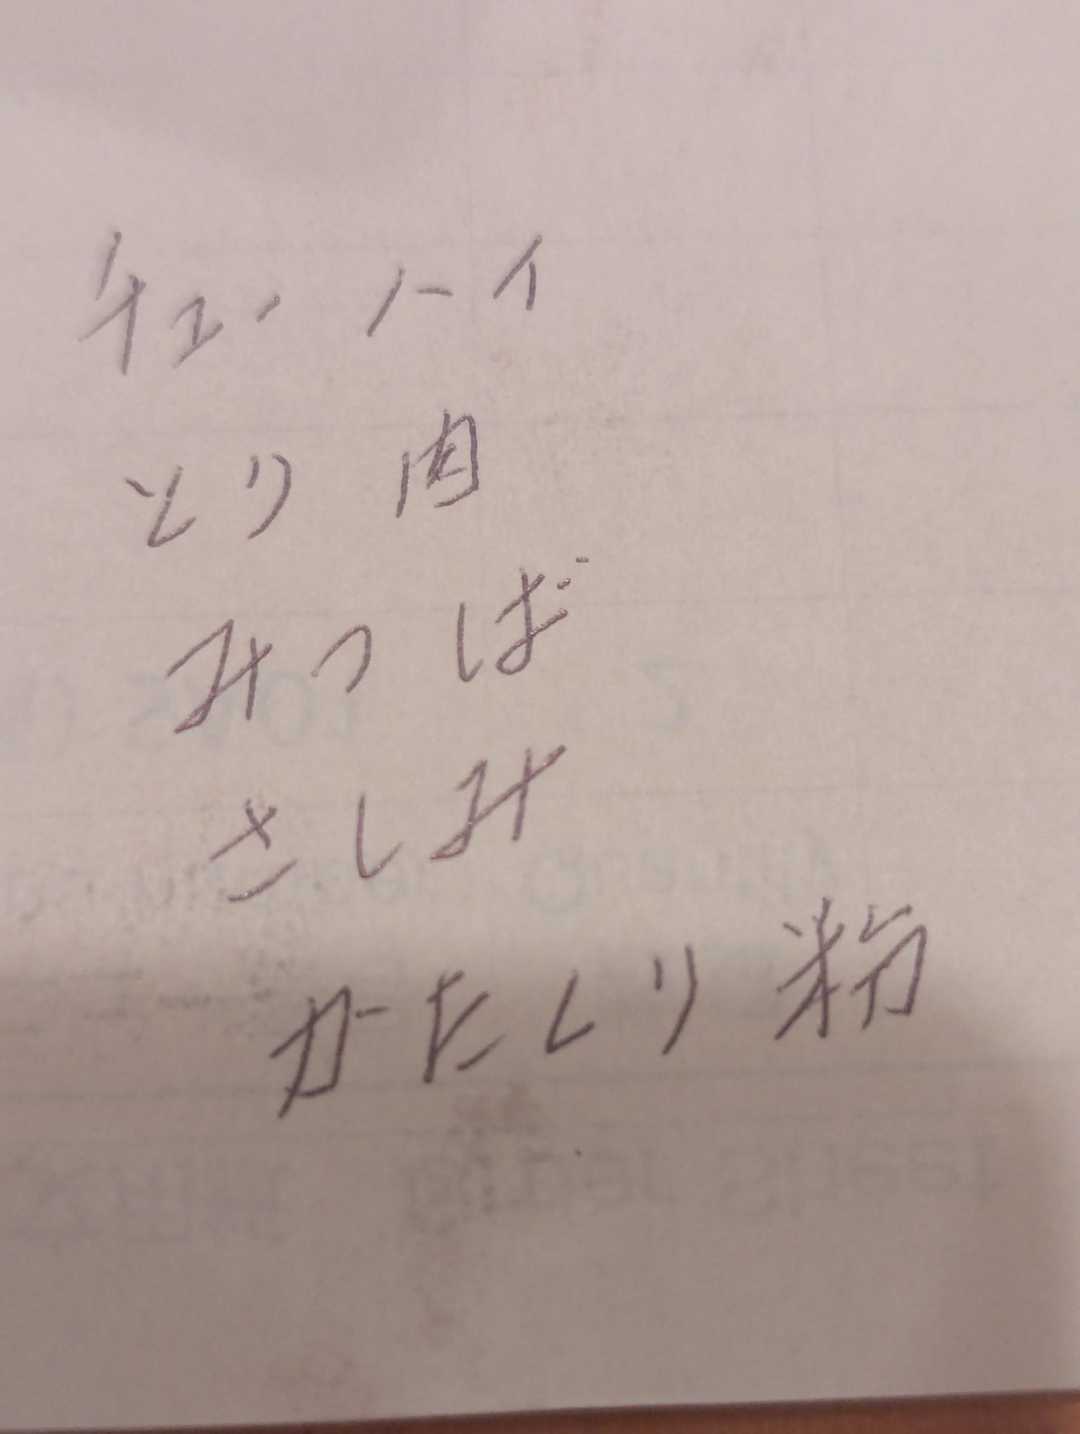 チューハイ
とり肉
みつば
さしみ
かたくり粉